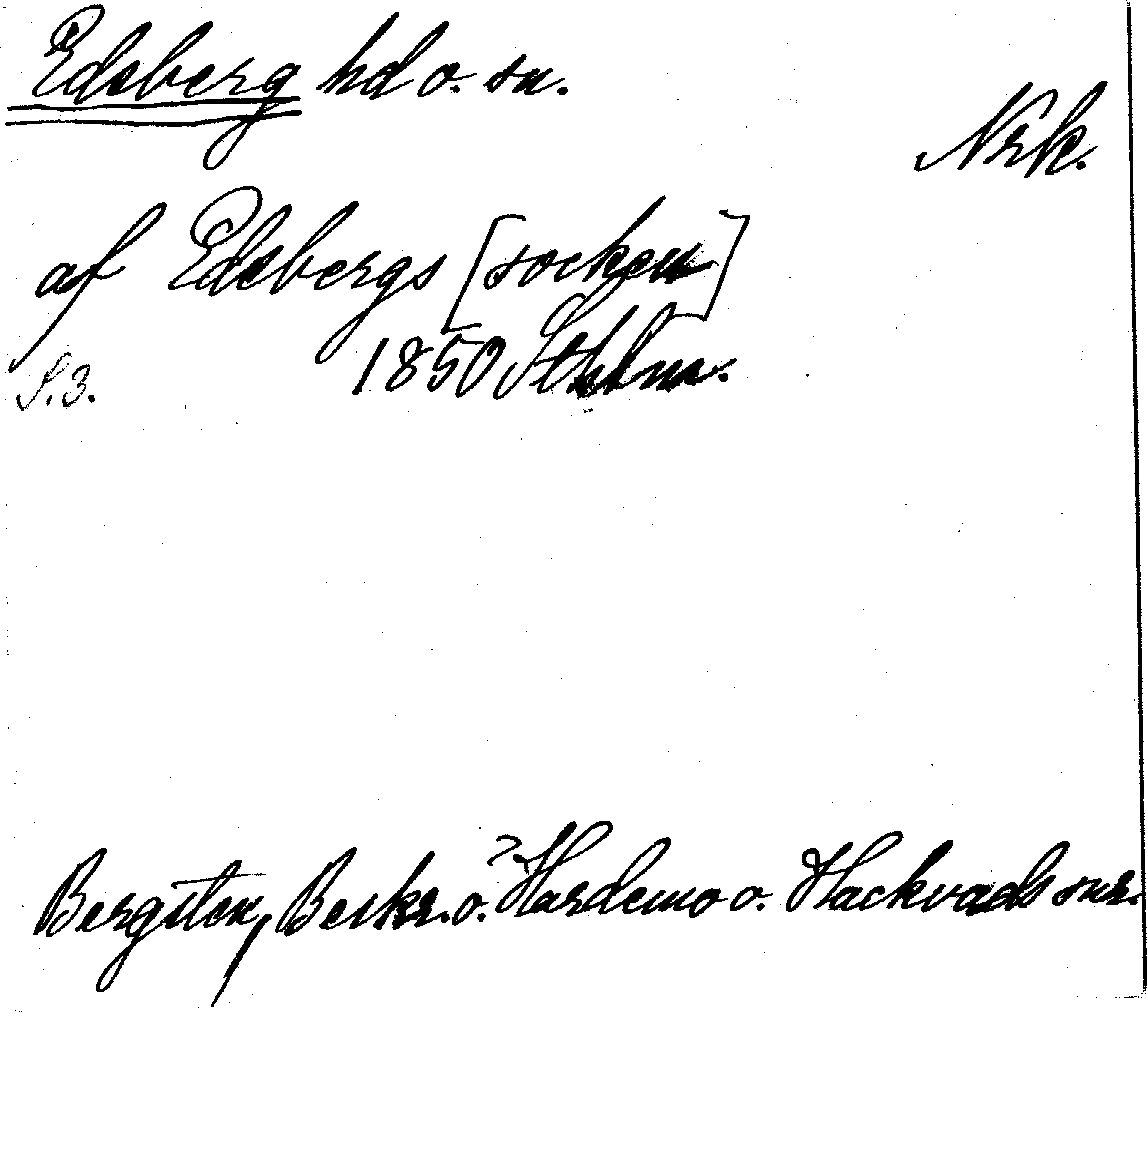 Edsberg hd o. sn.
Nrk.
af Edsbergs [socken]
S. 3. 1850 Sthlm.
Bergsten, Beskr. ö. Hardemo o. Hackvads snr.